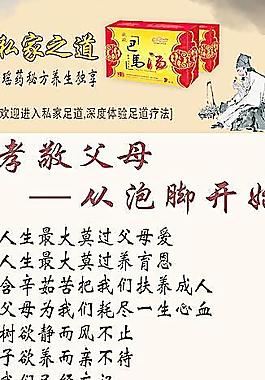 私家之道
瑶药秘方养生独享
欢迎进入私家足道,深度体验足道疗法]
巴马汤
孝敬父母
——从泡脚开始
人生最大莫过父母爱
人生最大莫过养育恩
含辛茹苦把我们扶养成人
父母为我们耗尽一生心血
树欲静而风不止
子欲养而亲不待